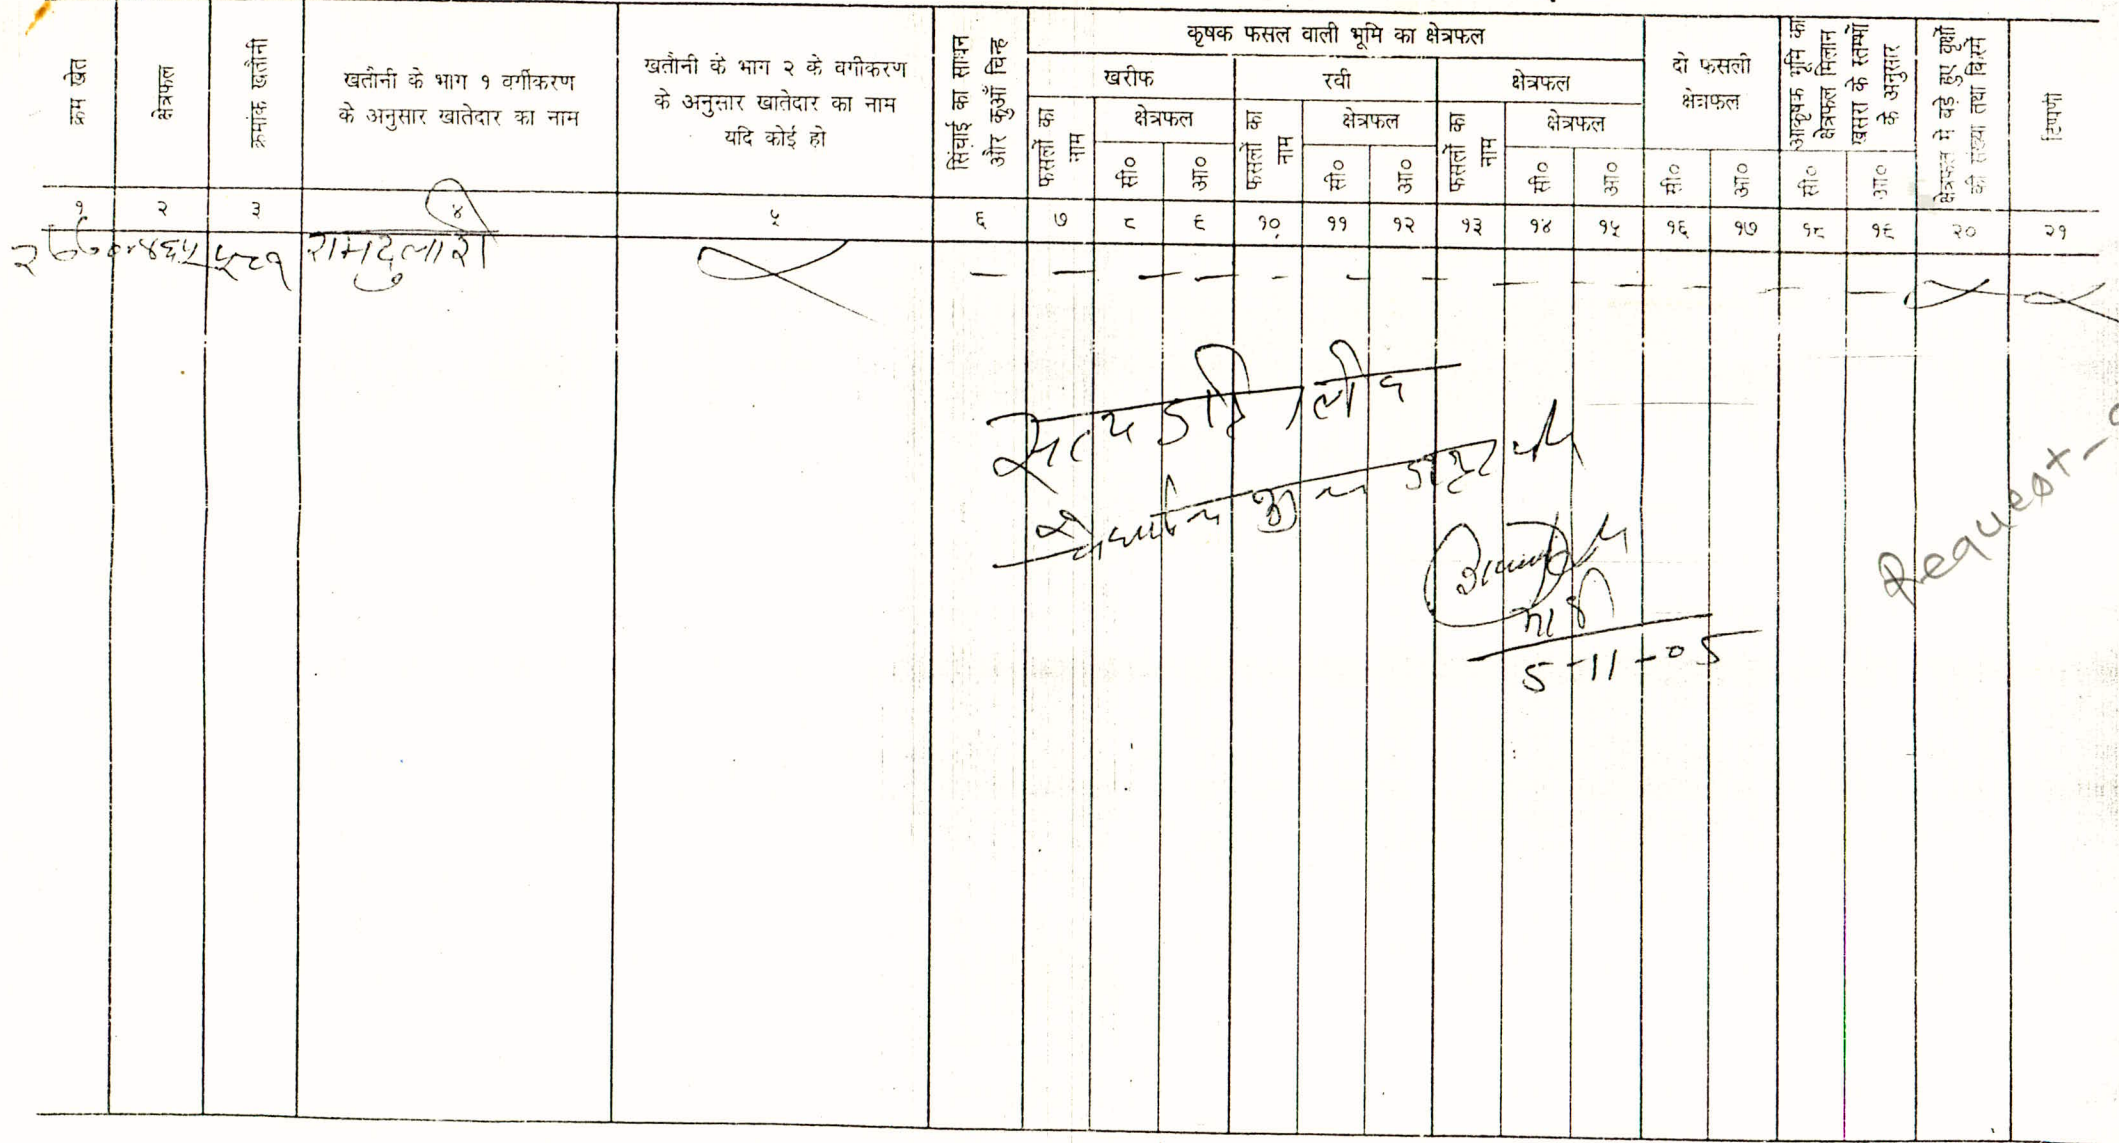 क्रम खेत
क्षेत्रफल
क्रमांक खतौनी
खतौनी के भाग १ वर्गीकरण
के अनुसार खातेदार का नाम
खतौनी के भाग २ के वर्गीकरण
के अनुसार खातेदार का नाम
यदि कोई हो
सिंचाई का साधन
और कुआँ चिन्ह
कृषक फसल वाली भूमि का क्षेत्रफल
खरीफ
रवी
क्षेत्रफल
फसलों का
नाम
क्षेत्रफल
सी०
आ०
फसलों का
नाम
क्षेत्रफल
सी०
आ०
फसलों का
नाम
क्षेत्रफल
सी०
आ०
दो फसली
क्षेत्रफल
सी०
आ०
आकृषक भूमि का
क्षेत्रफल मिलान
खसरा के स्तम्भों
के अनुसार
सी०
आ०
क्षेत्रफल में खड़े हुए वृक्षों
की संख्या तथा किस्में
टिप्पणी
१ २ ३ ४ ५ ६ ७ ८ ९ १० ११ १२ १३ १४ १५ १६ १७ १८ १९ २० २१
रामदुलारी
सत्य
5-11-05
Request-